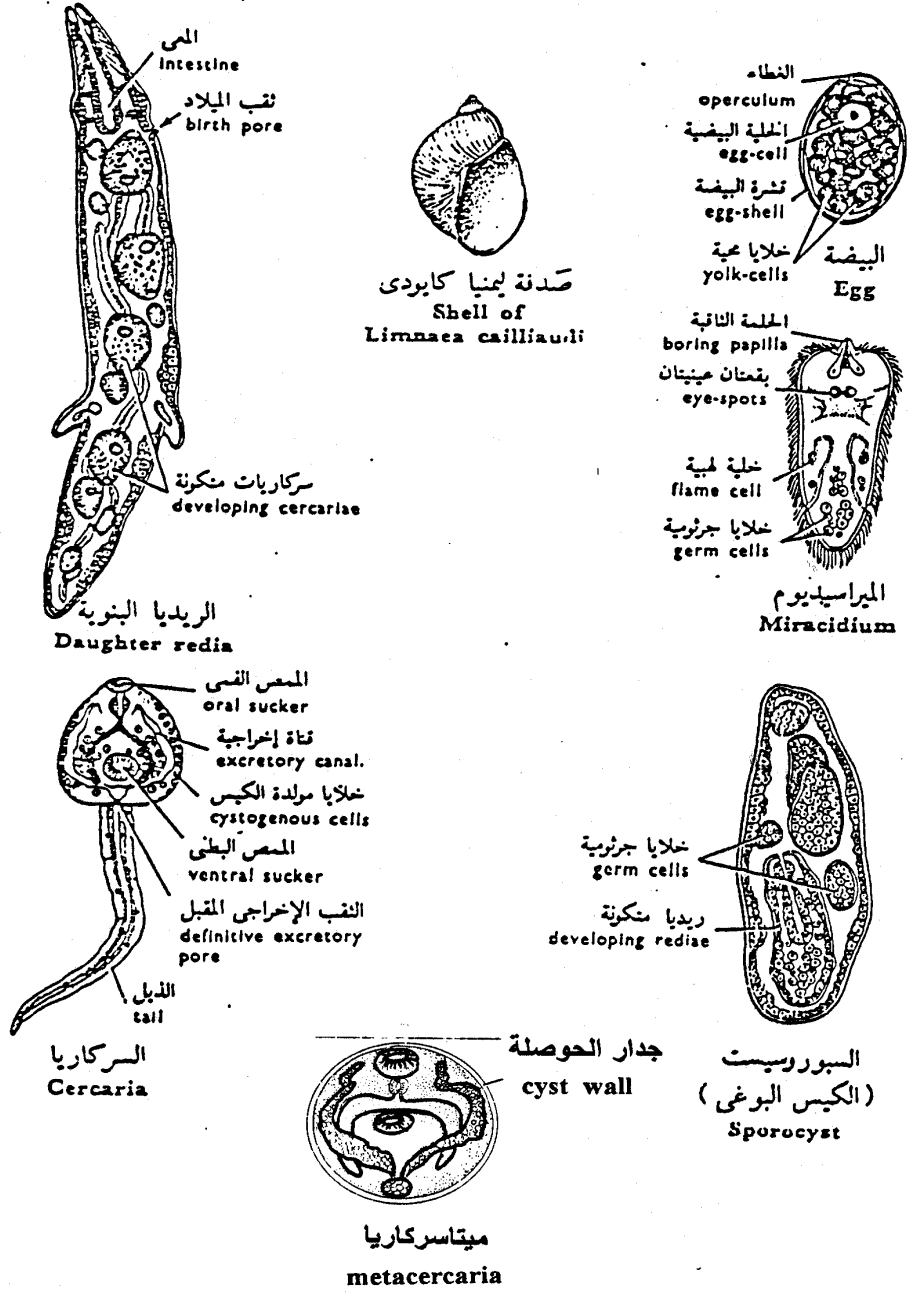 المعى
intestine
ثقب الميلاد
birth pore
سركاريات متكونة
developing cercariae
الريديا البنوية
Daughter redia
صدفة ليمنيا كايودى
Shell of
Limnaea cailliaudi
الغطاء
operculum
الخلية البيضية
egg-cell
قشرة البيضة
egg-shell
خلايا محية
yolk-cells
البيضة
Egg
الحلمة الثاقبة
boring papilla
بقعتان عينيتان
eye-spots
خلية لهبية
flame cell
خلايا جرثومية
germ cells
الميراسيديوم
Miracidium
الممص الفمى
oral sucker
قناة إخراجية
excretory canal.
خلايا مولدة الكيس
cystogenous cells
الممص البطنى
ventral sucker
الثقب الإخراجى المقبل
definitive excretory
pore
الذيل
tail
السركاريا
Cercaria
خلايا جرثومية
germ cells
ريديا متكونة
developing rediae
السبوروسيست
(الكيس البوغى)
Sporocyst
جدار الحوصلة
cyst wall
ميتاسركاريا
metacercaria